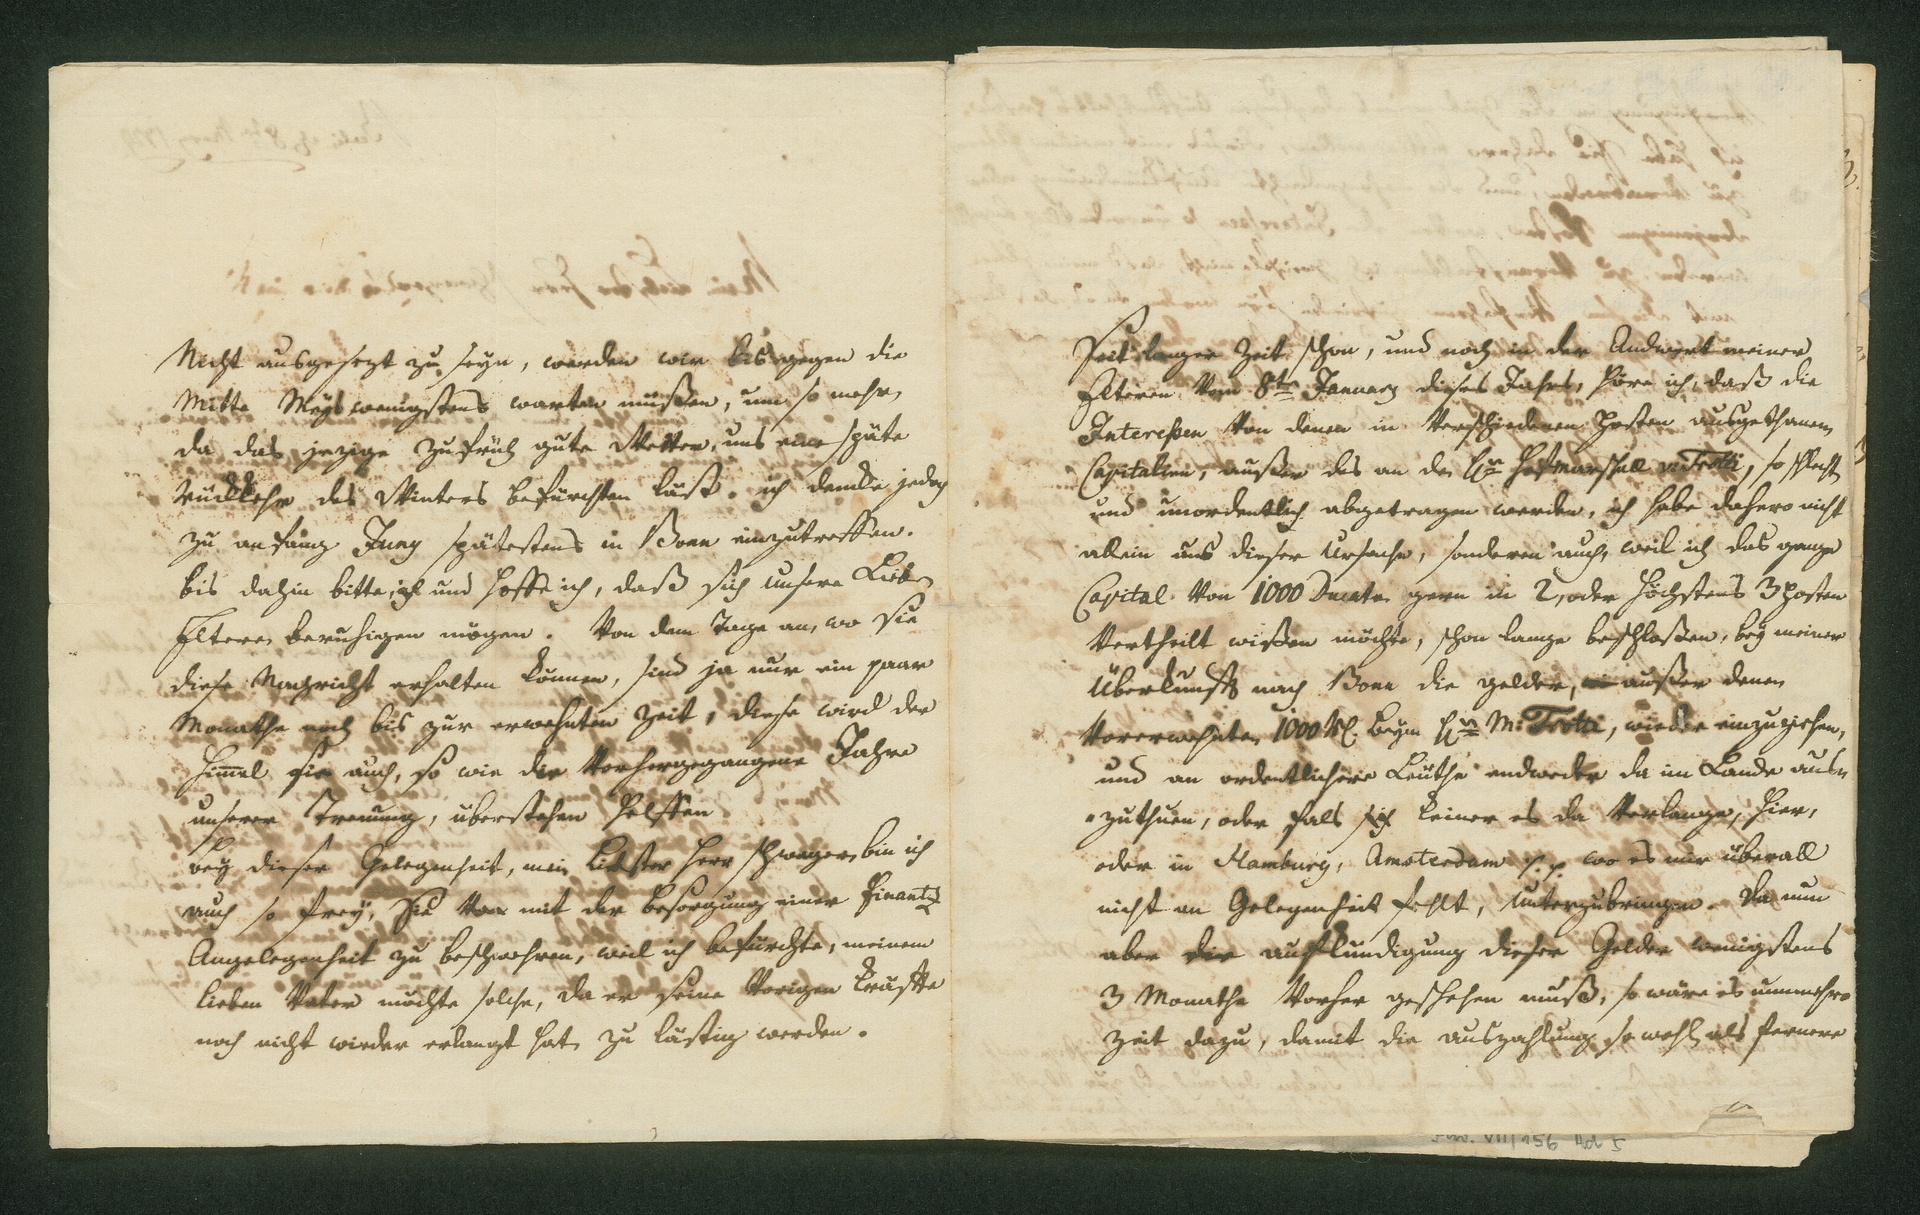 Nicht ausgesezt zu seyn, werden wir bis gegen die
Mitte Meys wenigstens warten müßen, um so mehr,
da das jezige zu früh gute Wetter, uns eine späte
Rückkehr des Winters befürchten läst. ich dencke jedoch
zu anfang Juny spätestens in Bonn einzutreffen.
bis dahin bitte ich und hoffe ich, daß sich unsere Lieben
Elteren beruhigen mögen. Von dem Tage an, wo Sie
diese Nachricht erhalten können, sind ja nur ein paar
Monathe noch bis zur erwehnten Zeit, diese wird der
Himmel sie auch, so wie die Vorhergegangene Jahre
unserer Trennung, überstehen helffen.
bey dieser Gelegenheit, mein Liebster Herr Schwager, bin ich
auch so frey, Sie mit der besorgung einer Finantz
Angelegenheit zu beschwehren, weil ich befürchte, meinem
lieben Vater möchte solche, da er seine Vorigen Kräffte
noch nicht wieder erlangt hat, zu lästig werden.
Seit langer Zeit schon, und noch in der Andwort meiner
Elteren Vom 8ten January dieses Jahrs, höre ich, daß die
Intereßen Von denen in Verschiedenen Posten ausgethanen
Capitalien, außer des an den Hrn Hofmarschall v: Trotti, so schlecht
und unordentlich abgetragen werden, ich habe dahero nicht
allein aus dieser Ursache, sonderen auch, weil ich das ganze
Capital Von 1000 Ducaten gern in 2, oder höchstens 3 Posten
Vertheilt wißen möchte, schon lange beschloßen, bey meiner
Überkunfft nach Bonn die gelder, außer denen
Vorerwehnten 1000 Rl. beym Hrn M: Trotti, wieder einzuziehen,
und an ordentlichere Leüthe endweder da im Lande aus-
-zuthuen, oder fals sich keiner es da Verlange, hier,
oder in Hamburg, Amsterdam p. p. wo es mir überall
nicht an Gelegenheit fehlt, unterzubringen. Da nun
aber die aufkündigung dieser Gelder wenigstens
3 Monathe Vorher geschehen muß, so wäre es nunmehro
Zeit dazu, damit die auszahlung so wohl als fernere
VII/156